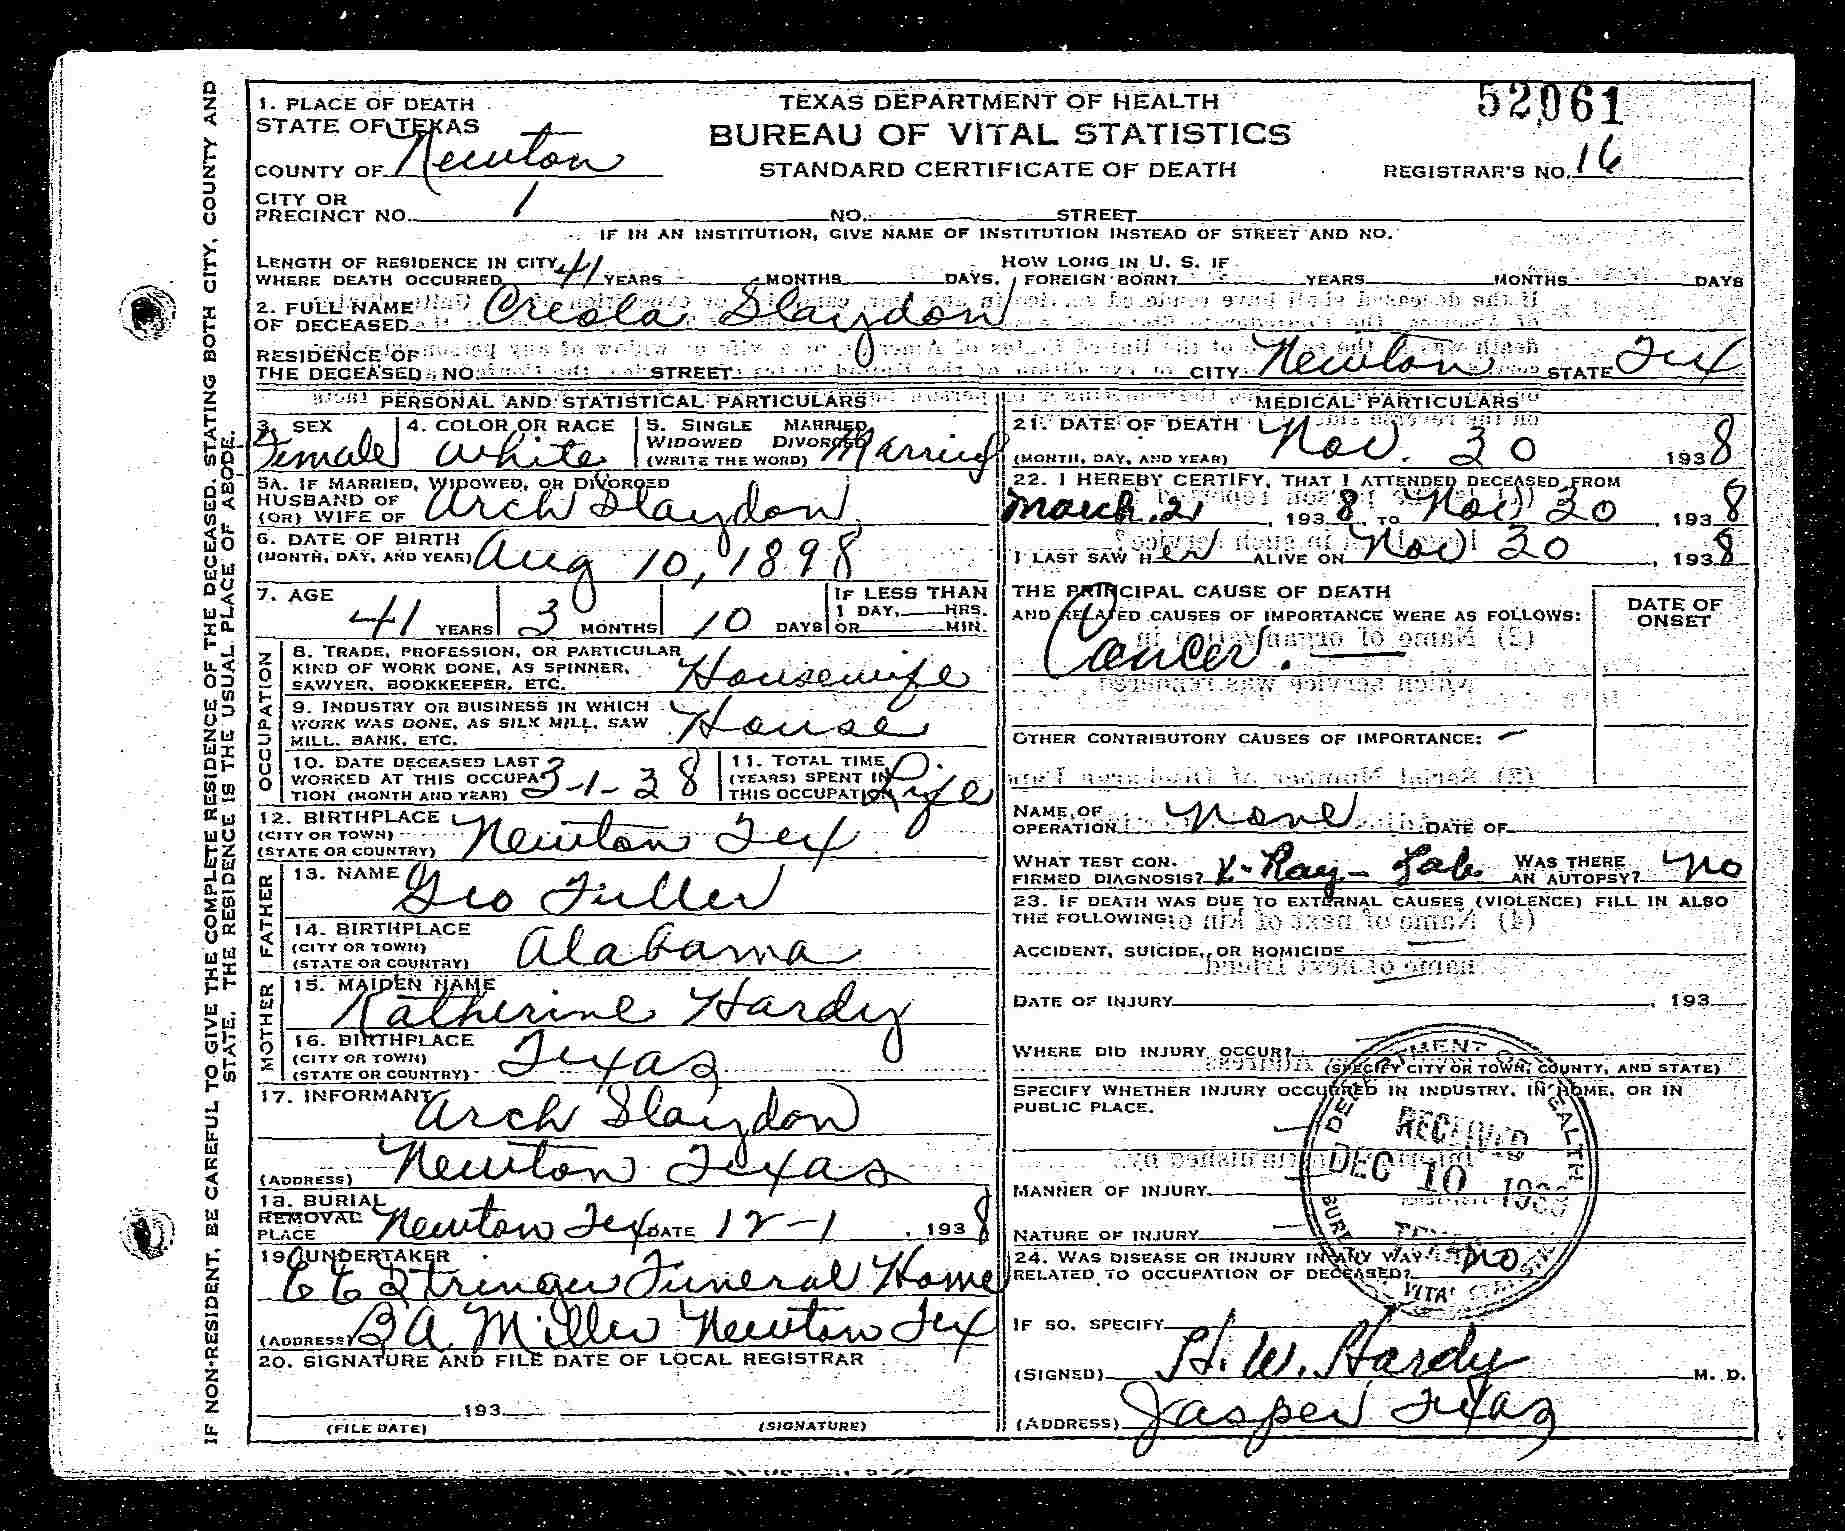 IF NON-RESIDENT, BE CAREFUL TO GIVE THE COMPLETE RESIDENCE OF THE DECEASED, STATING BOTH CITY, COUNTY AND
STATE. THE RESIDENCE IS THE USUAL PLACE OF ABODE.
TEXAS DEPARTMENT OF HEALTH
BUREAU OF VITAL STATISTICS
STANDARD CERTIFICATE OF DEATH
52061
REGISTRAR'S NO. 16
1. PLACE OF DEATH
STATE OF TEXAS
COUNTY OF Newton
CITY OR
PRECINCT NO. 1 NO. STREET
IF IN AN INSTITUTION, GIVE NAME OF INSTITUTION INSTEAD OF STREET AND NO.
LENGTH OF RESIDENCE IN CITY HOW LONG IN U. S. IF
WHERE DEATH OCCURRED 41 YEARS MONTHS DAYS. FOREIGN BORN? YEARS MONTHS DAYS
2. FULL NAME
OF DECEASED Creola Slaydon
RESIDENCE OF
THE DECEASED: NO. STREET CITY Newton STATE Tex
PERSONAL AND STATISTICAL PARTICULARS
3. SEX
Female
4. COLOR OR RACE
White
5. SINGLE MARRIED
WIDOWED DIVORCED
(WRITE THE WORD) Married
5A. IF MARRIED, WIDOWED, OR DIVORCED
HUSBAND OF
(OR) WIFE OF Arch Slaydon
6. DATE OF BIRTH
(MONTH, DAY, AND YEAR) Aug 10, 1898
7. AGE
41 YEARS 3 MONTHS 10 DAYS
IF LESS THAN
1 DAY, HRS.
OR MIN.
OCCUPATION
8. TRADE, PROFESSION, OR PARTICULAR
KIND OF WORK DONE, AS SPINNER,
SAWYER, BOOKKEEPER, ETC. Housewife
9. INDUSTRY OR BUSINESS IN WHICH
WORK WAS DONE, AS SILK MILL, SAW
MILL, BANK, ETC. House
10. DATE DECEASED LAST
WORKED AT THIS OCCUPA-
TION (MONTH AND YEAR) 3-1-38
11. TOTAL TIME
(YEARS) SPENT IN
THIS OCCUPATION Life
12. BIRTHPLACE
(CITY OR TOWN)
(STATE OR COUNTRY) Newton Tex
FATHER
13. NAME Geo Fuller
14. BIRTHPLACE
(CITY OR TOWN)
(STATE OR COUNTRY) Alabama
MOTHER
15. MAIDEN NAME
Katherine Hardy
16. BIRTHPLACE
(CITY OR TOWN)
(STATE OR COUNTRY) Texas
17. INFORMANT Arch Slaydon
(ADDRESS) Newton Texas
18. BURIAL
REMOVAL
PLACE Newton Tex DATE 12-1, 1938
19. UNDERTAKER
E E Stringer Funeral Home
(ADDRESS) B A Miller Newton Tex
20. SIGNATURE AND FILE DATE OF LOCAL REGISTRAR
193
(FILE DATE) (SIGNATURE)
MEDICAL PARTICULARS
21. DATE OF DEATH
(MONTH, DAY, AND YEAR) Nov. 30 1938
22. I HEREBY CERTIFY, THAT I ATTENDED DECEASED FROM
March 21, 1938 TO Nov 30, 1938
I LAST SAW HER ALIVE ON Nov 30, 1938
THE PRINCIPAL CAUSE OF DEATH
AND RELATED CAUSES OF IMPORTANCE WERE AS FOLLOWS:
DATE OF
ONSET
Cancer.
OTHER CONTRIBUTORY CAUSES OF IMPORTANCE: -
NAME OF
OPERATION None DATE OF
WHAT TEST CON-
FIRMED DIAGNOSIS? X-Ray- Lab.
WAS THERE
AN AUTOPSY? No
23. IF DEATH WAS DUE TO EXTERNAL CAUSES (VIOLENCE) FILL IN ALSO
THE FOLLOWING:
ACCIDENT, SUICIDE, OR HOMICIDE
DATE OF INJURY , 193
WHERE DID INJURY OCCUR?
(SPECIFY CITY OR TOWN, COUNTY, AND STATE)
SPECIFY WHETHER INJURY OCCURRED IN INDUSTRY, IN HOME, OR IN
PUBLIC PLACE.
MANNER OF INJURY
NATURE OF INJURY
24. WAS DISEASE OR INJURY IN ANY WAY
RELATED TO OCCUPATION OF DECEASED? No
IF SO, SPECIFY
(SIGNED) H. W. Hardy M. D.
(ADDRESS) Jasper Texas
DEPARTMENT OF HEALTH
RECEIVED
DEC 10 1938